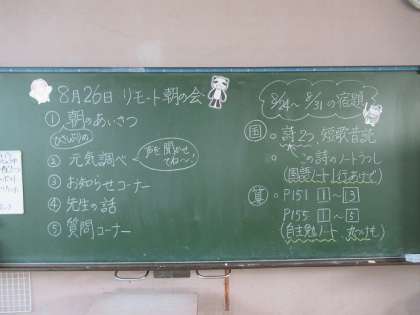 8月26日 リモート朝の会
① 朝のあいさつ
ひさしぶりの
② 元気調べ
声を聞かせてね〜!
③ お知らせコーナー
④ 先生の話
⑤ 質問コーナー
8/24〜8/31の宿題
国 ○ 詩2つ 短歌音読
○ この詩のノートうつし
(国語ノート1行あけで)
算 ○ P151 1〜3
P155 1〜5
(自主勉ノート 丸つけも)